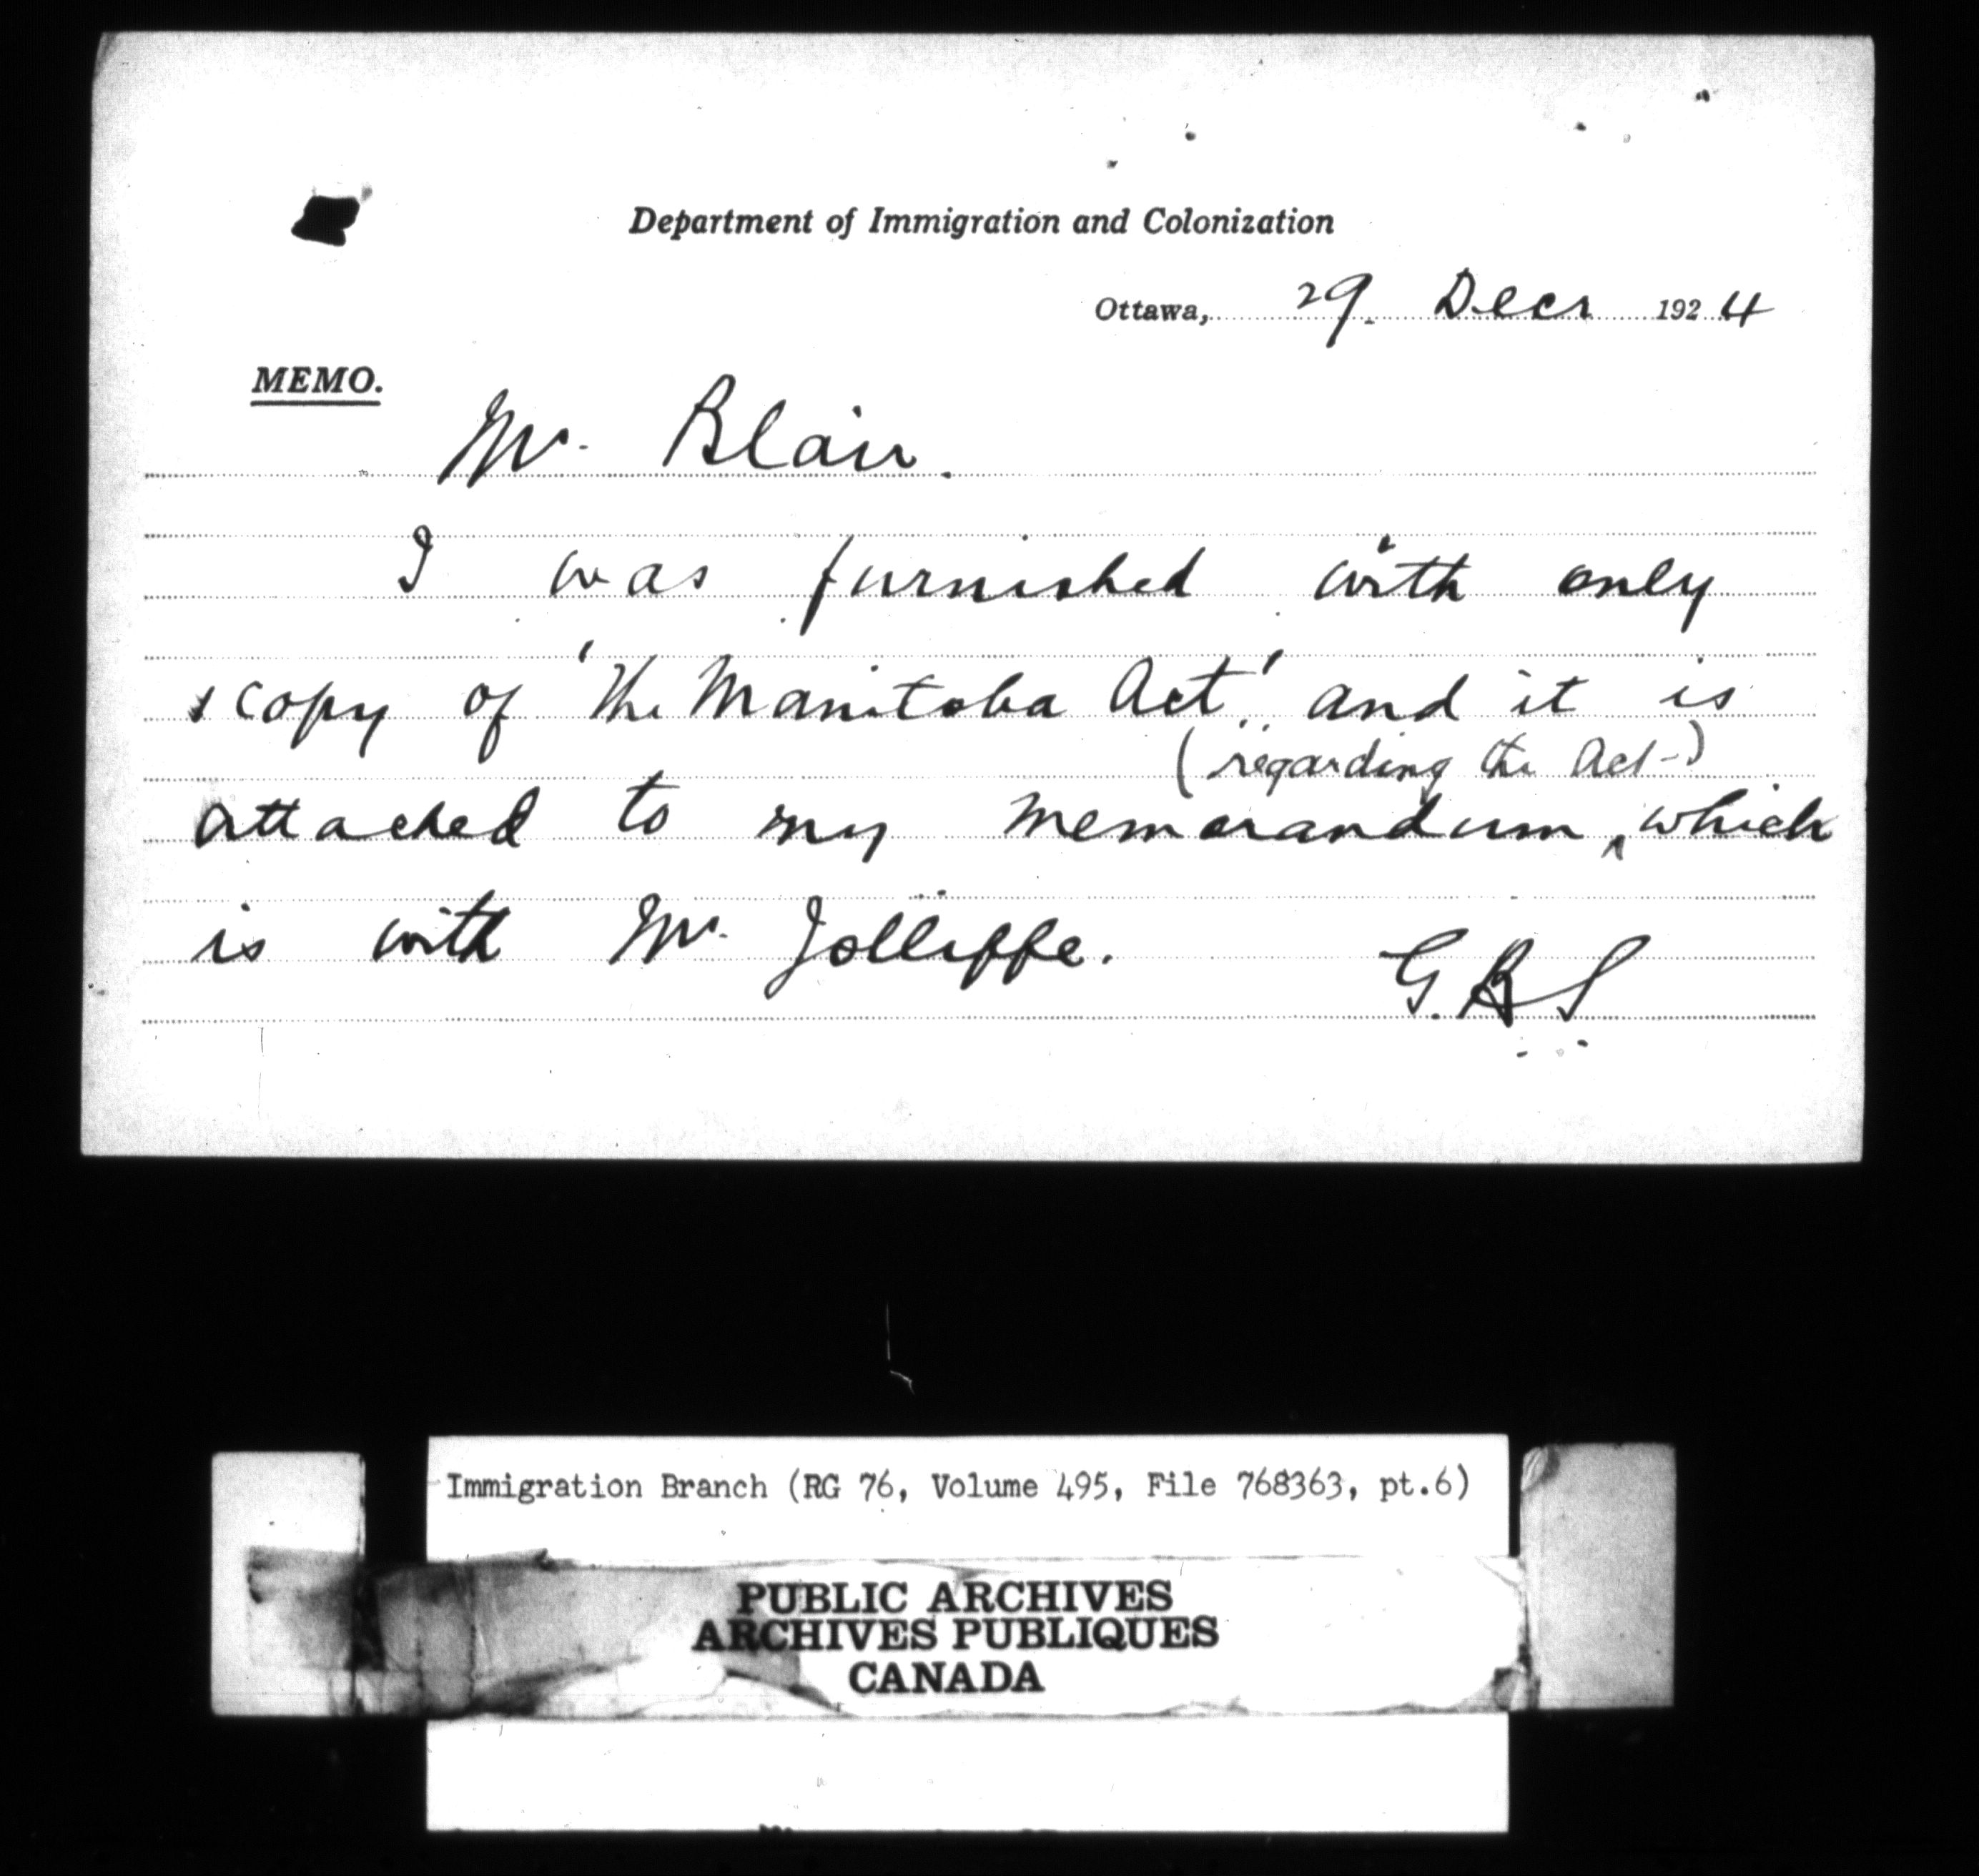 Department of Immigration and Colonization
Ottawa, 29. Decr 1924
MEMO.
Mr. Blair.
I was furnished with only
1 copy of 'The Manitoba Act' and it is
(regarding the Act-)
attached to my memorandum, which
is with Mr. Jolliffe.
G.R.S
Immigration Branch (RG 76, Volume 495, File 768363, pt.6)
PUBLIC ARCHIVES
ARCHIVES PUBLIQUES
CANADA